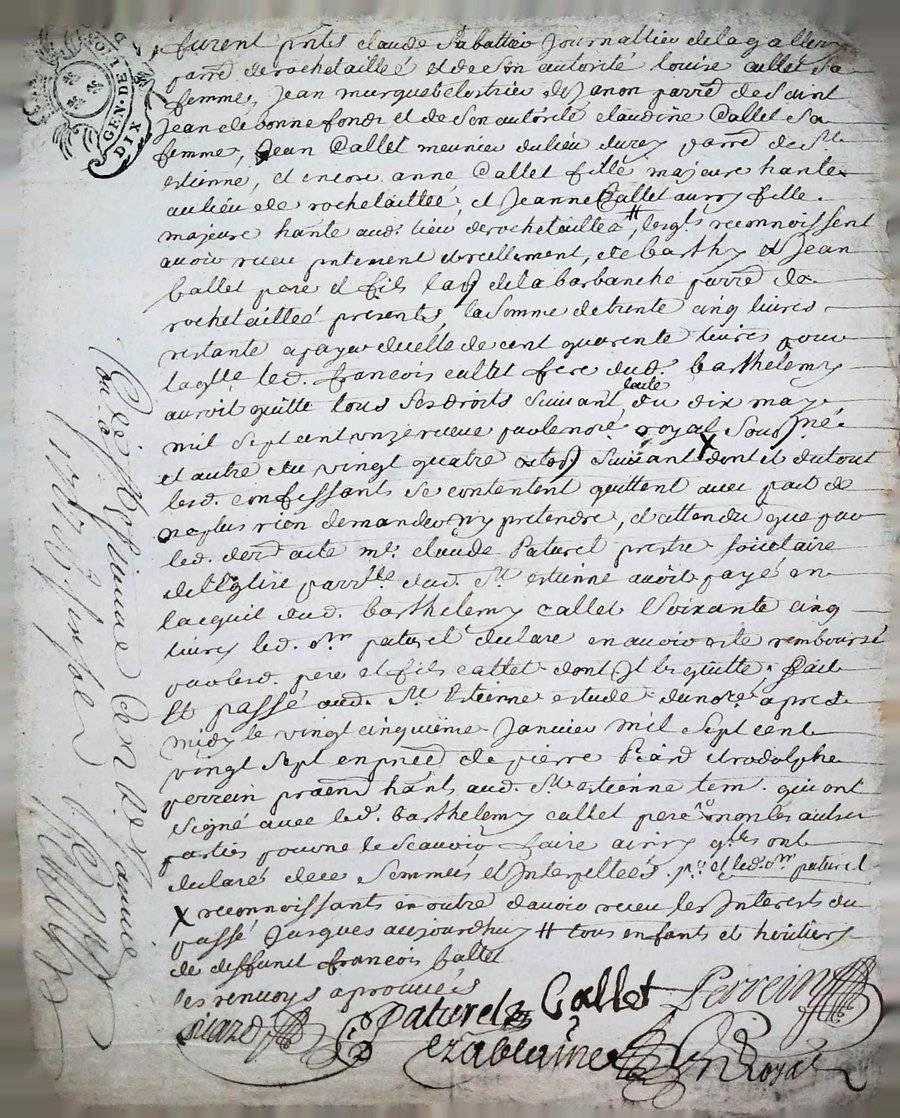 GEN. DE LION
DIX
furent pnts claude Sabattier Journallier de la gallery
parre de rochetaillée et de son autorité louise callet sa
femme, Jean murgue belostrier de Janon parre de Saint
Jean de bonnefond et de son autorité claudine Callet sa
femme, Jean Callet meunier du lieu durey parre de St
estienne, et encore anne Callet fille majeure hante
au lieu de rochetaillée, et Jeanne Callet aussy fille
majeure hante aud. lieu de rochetaillée #, lesqls reconnoissent
avoir receu pntement et reellement, de barthy et Jean
Callet pere et fils lab de la barbanche parre de
rochetaillée presents, la somme de trente cinq livres
restante a payer de celle de cent quarente livres pour
laqlle led. francois callet frere dud. barthelemy
auroit quitte tous ses droits suivant l'acte du dix may
mil sept cent unze receu par le nore royal soussigné
et autre du vingt quatre suivant X dont et du tout
lesd. confessants se contentent quittent avec pact de
ne plus rien demander ny pretendre, et attendu que par
led. derd acte mre claude Paturel prestre societaire
de l'Eglise parrlle dud. St estienne avoit payé en
l'acquit dud. barthelemy callet Soixante cinq
livres led. sr paturel declare en avoir esté remboursé
par lesd. pere et fils callet dont Il les quitte, fait
Et passé aud. St Estienne estude du nore apred
midy le vingt cinquième Janvier mil sept cent
vingt sept en pnce de pierre Picard et rodolphe
perrein praend hants aud. St estienne tem. qui ont
signé avec led. barthelemy callet pere non les autres
parties pour ne le scavoir faire ainsy qlles ont
declaré de ce Sommées et Interpellées. et led. sr paturel
X reconnoissants en outre d'avoir receu les Interests du
passé Jusques aujourdhuy # tous enfants et heritiers
de deffunct francois Callet
les renvoys aprouvés
Perrein
Callet
Paturel
picard
Royal